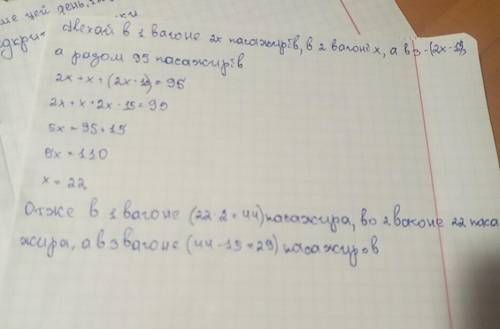 ше цей день.
Нехай в 1 вагоне 2x пасажирів, в 2 вагоні x, а в 3 - (2x-15)
а разом 95 пасажирів
2x + x + (2x - 15) = 95
2x + x + 2x - 15 = 95
5x = 95 + 15
5x = 110
x = 22
Отже в 1 вагоне (22·2=44) пасажира, во 2 вагоне 22 паса
жира, а в 3 вагоне (44-15=29) пасажиров